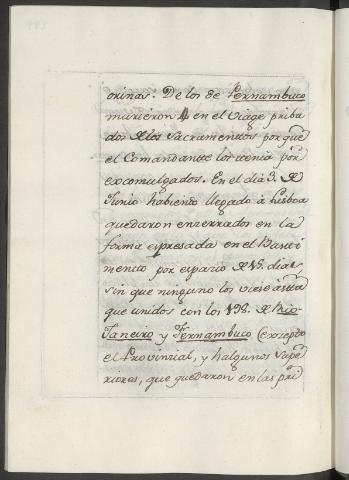 orinas. De los de Pernambuco
murieron 4 en el Viage priba
dos de los Sacramentos por que
el Comandante los tenia por
excomulgados. En el dia 3. de
Junio habiendo llegado á Lisboa
quedaron enzerrados en la
forma espresada en el Basti
mento por espazio de 18. dias,
sin que ninguno los viese asta
que unidos con los 198. de Rio-
Janeiro y Fernambuco (exsepto
el Provinzial, y halgunos supe
riores, que quedaron en las pri